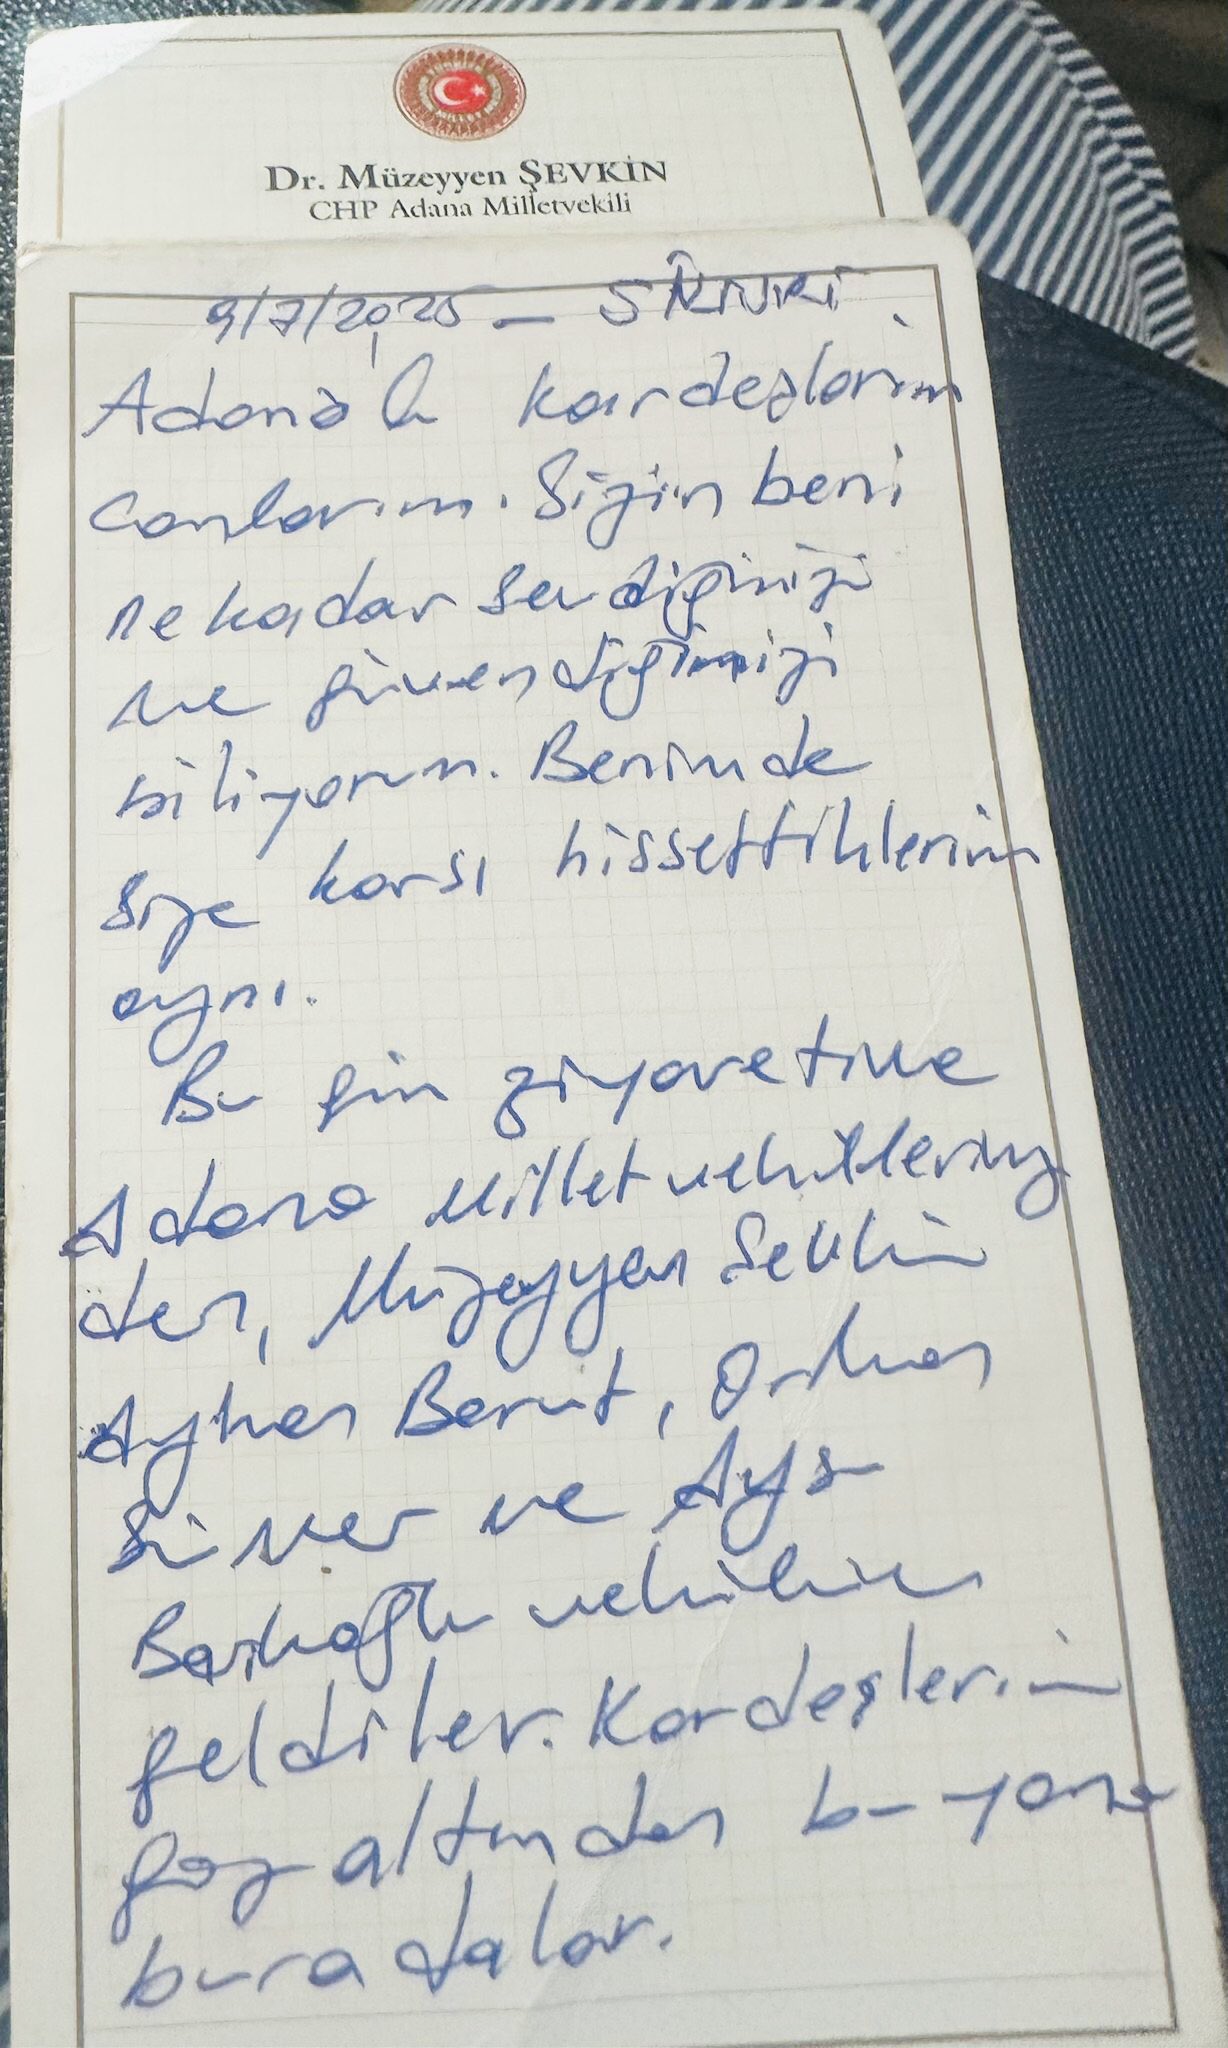 Dr. Müzeyyen ŞEVKİN
CHP Adana Milletvekili
9/7/2025 - SİLİVRİ
Adanalı kardeşlerim
canlarım. Sizin beni
ne kadar sevdiğinizi
ve güvendiğinizi
biliyorum. Benimde
size karşı hissettiklerim
aynı.
Bu gün ziyaretime
Adana Milletvekilleriniz
den, Müzeyyen Sevkin
Ayhan Barut, Orhan
Sümer ve Ayşe
vekilim
geldiler. Kardeşlerim
göz altından bu yana
buradalar.